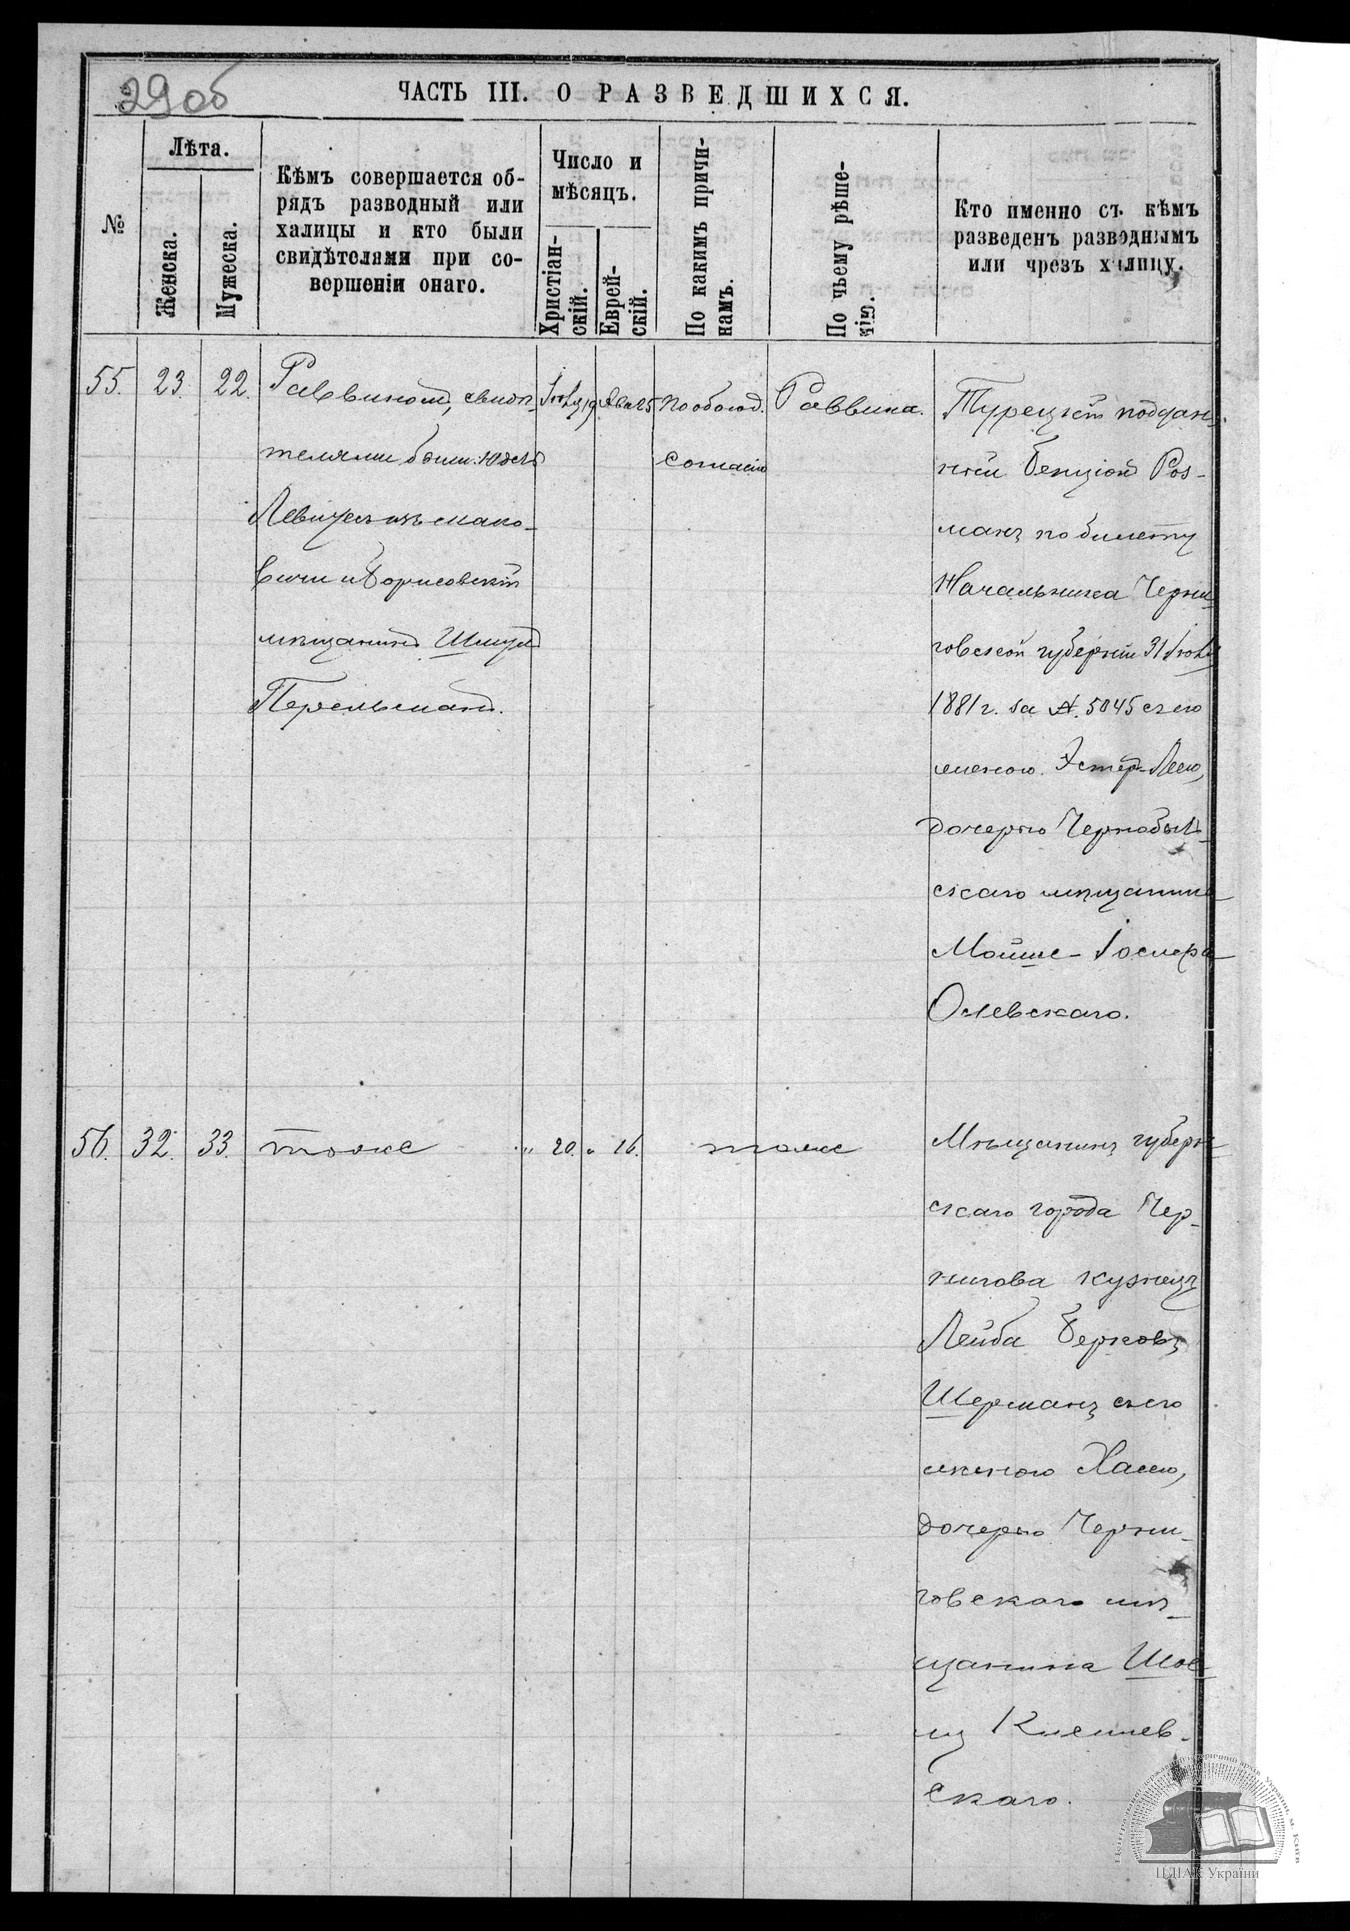 29 об
ЧАСТЬ III. О РАЗВЕДШИХСЯ.
№
Лѣта.
Женска.
Мужеска.
Кѣмъ совершается об-
рядъ разводный или
халицы и кто были
свидѣтелями при со-
вершеніи онаго.
Число и
мѣсяцъ.
Христіан-
скій.
Еврей-
скій.
По какимъ причи-
намъ.
По чьему рѣше-
нію.
Кто именно съ кѣмъ
разведенъ разводнымъ
или чрезъ халицу.
55. 23. 22.
Раввиномъ, свидѣ-
телями были:
вичи и Борисовскій
мѣщанинъ Шмуль
Перельманъ.
По обоюд.
согласію
Раввина.
Турецкій поддан-
ный Бенціонъ Роз-
манъ по билету
Начальника Черни-
говской губерніи 31 Іюля
1881 г. за №. 5045 съ его
женою Эстер-Леею,
дочерью Чернобыль-
скаго мѣщанина
Мойше-
Олевскаго.
56. 32. 33.
тоже
" 20. " 16.
тоже
Мѣщанинъ губерн-
скаго города Чер-
нигова кузнецъ
Лейба Берковъ
Шерманъ съ его
женою Хаею,
дочерью Черни-
говскаго мѣ-
щанина
скаго.
ЦДІАК України